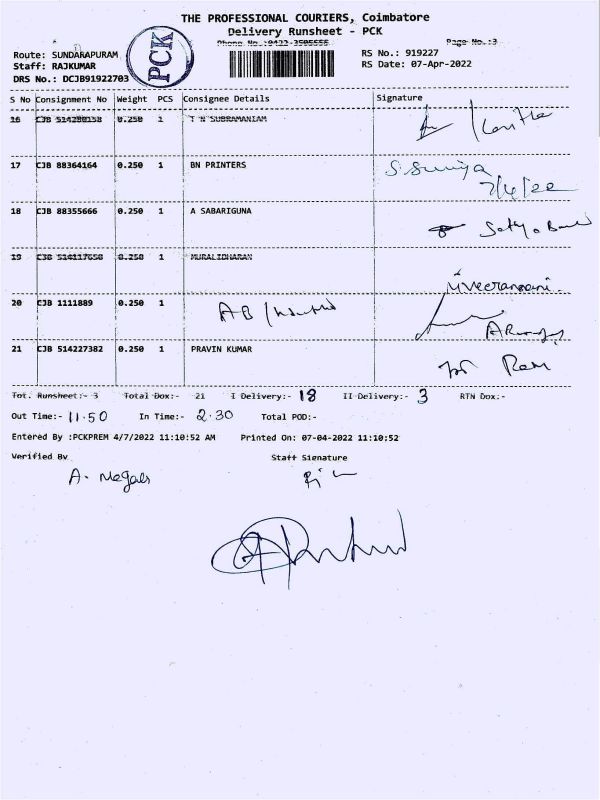 THE PROFESSIONAL COURIERS, Coimbatore
Delivery Runsheet - PCK
Phone No.:0422-3505555 Page No.:3
Route: SUNDARAPURAM
Staff: RAJKUMAR
DRS No.: DCJB91922703
PCK
RS No.: 919227
RS Date: 07-Apr-2022
S No Consignment No Weight PCS Consignee Details Signature
16 CJB 0.250 1 T N SUBRAMANIAM
17 CJB 88364164 0.250 1 BN PRINTERS S. Suniya
7/4/22
18 CJB 88355666 0.250 1 A SABARIGUNA
19 CJB 514117658 0.250 1 MURALIDHARAN
20 CJB 1111889 0.250 1 AB /
21 CJB 514227382 0.250 1 PRAVIN KUMAR Ram
Tot. Runsheet:- 3 Total Dox:- 21 I Delivery:- 18 II Delivery:- 3 RTN Dox:-
Out Time:- 11.50 In Time:- 2.30 Total POD:-
Entered By :PCKPREM 4/7/2022 11:10:52 AM Printed On: 07-04-2022 11:10:52
Verified By Staff Signature
A.